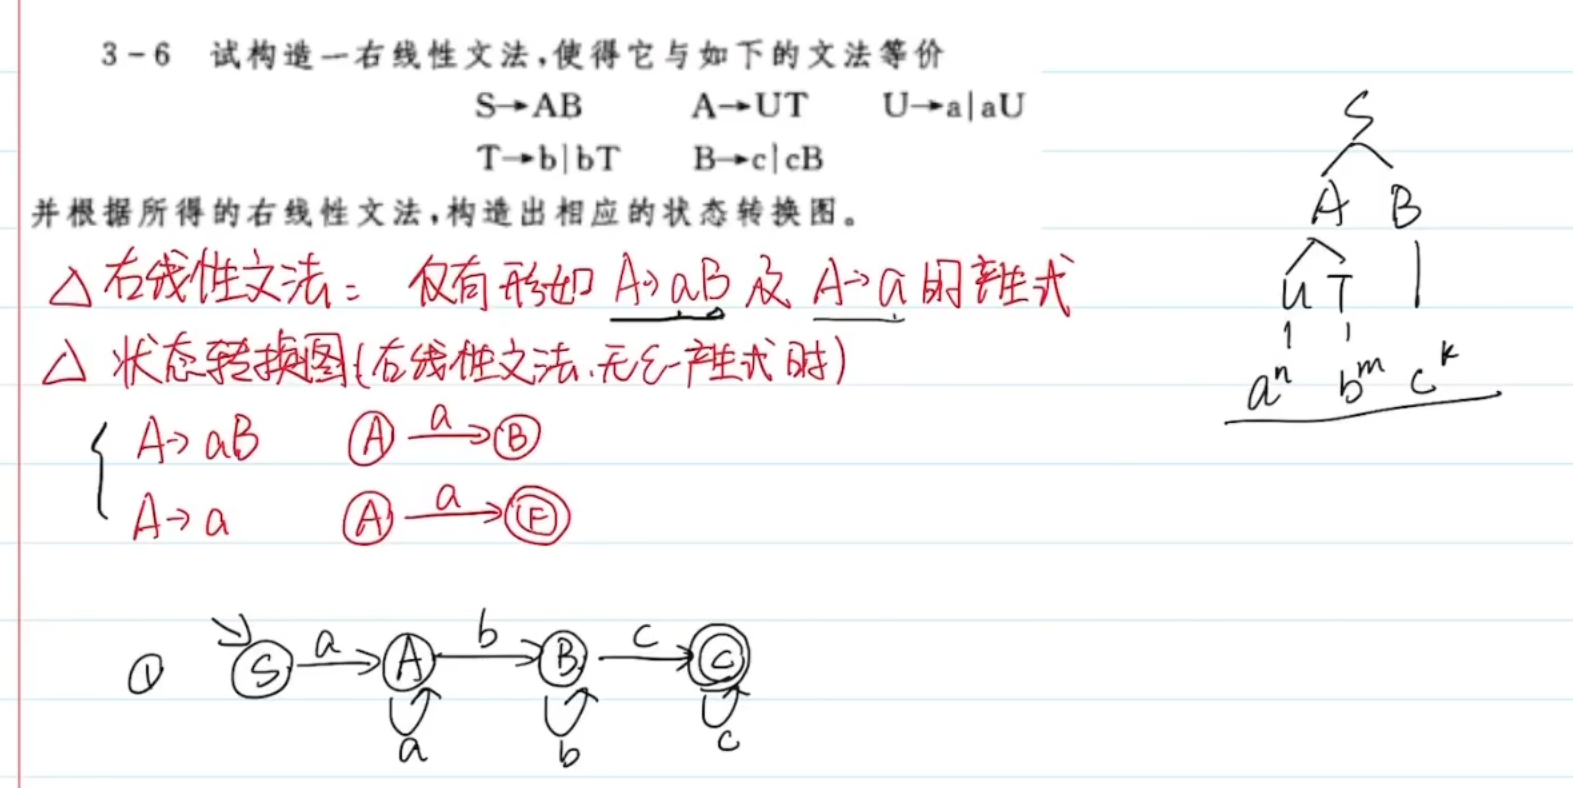 3-6 试构造一右线性文法,使得它与如下的文法等价
S→AB A→UT U→a|aU
T→b|bT B→c|cB
并根据所得的右线性文法,构造出相应的状态转换图。
△ 右线性文法: 仅有形如 A→aB 及 A→a 的产生式
△ 状态转换图(右线性文法、无ε-产生式时)
A→aB A a B
A→a A a F
S
A B
U T
aⁿ bᵐ cᵏ
① S a A b B c C
a b c